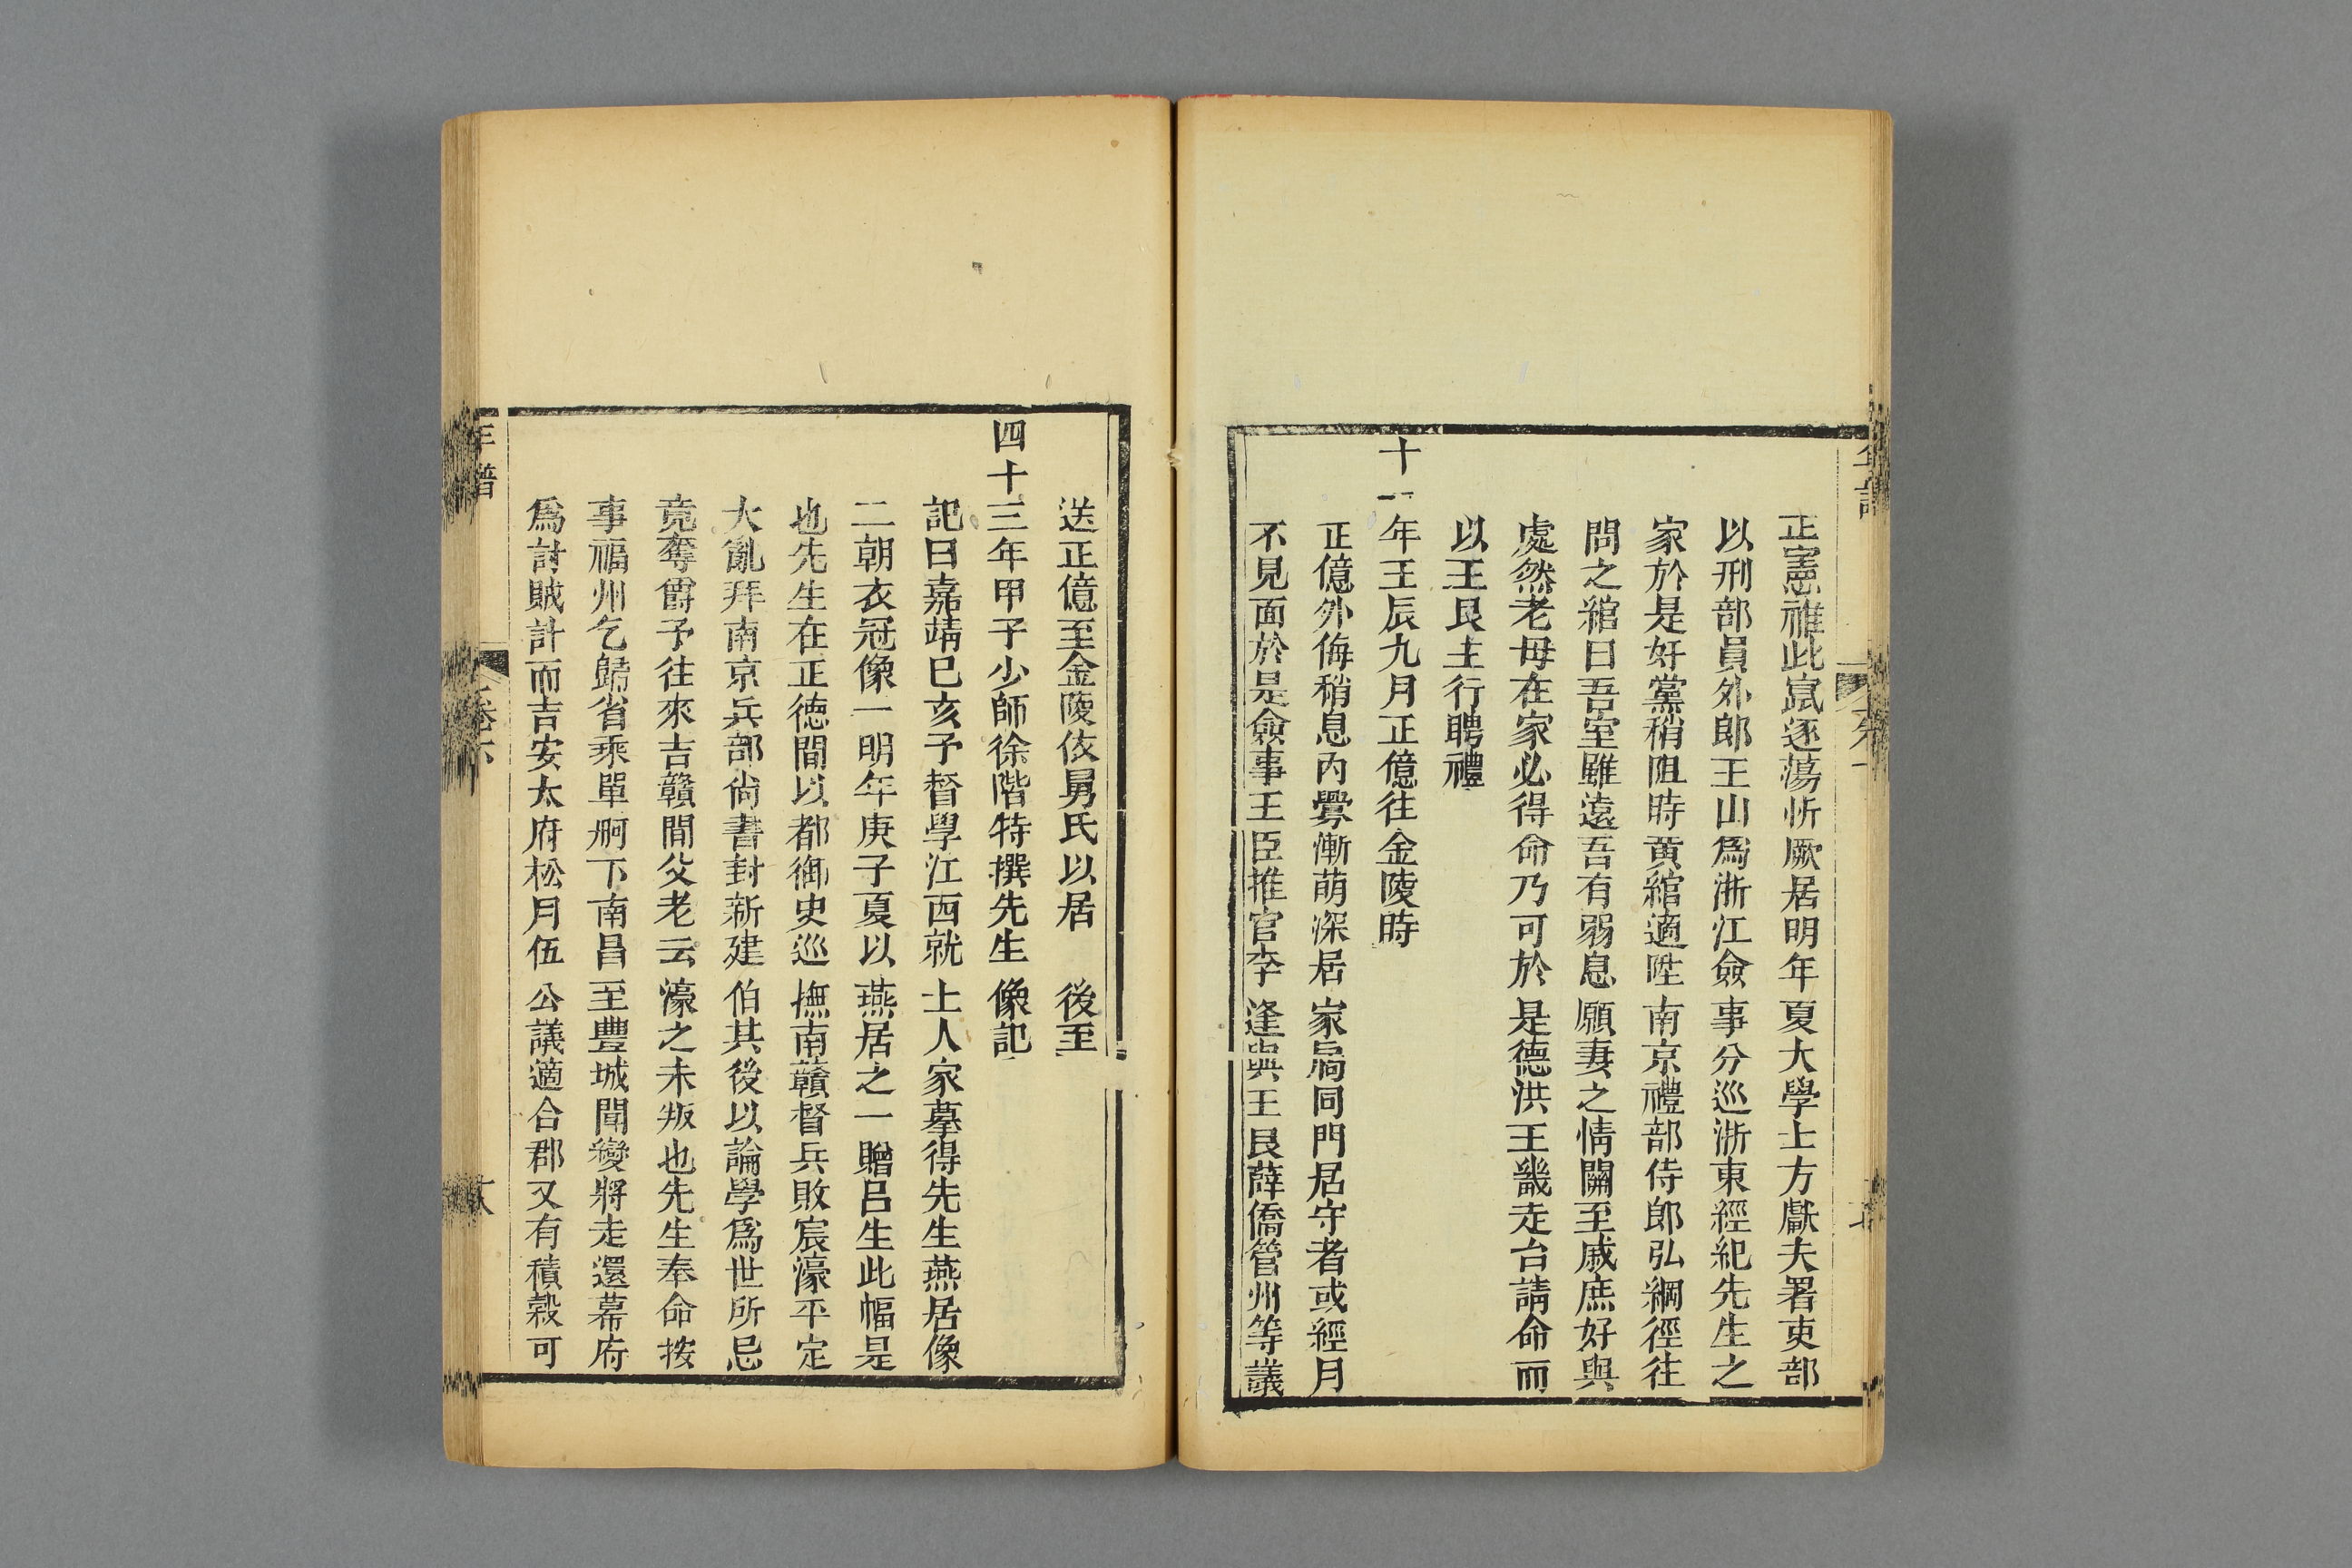 正憲雖此竄逐蕩忻厥居明年夏大學士方獻夫署吏部
以刑部員外郎王山爲浙江僉事分巡浙東經紀先生之
家於是奸黨稍阻時黄綰適陞南京禮部侍郎弘綱徑往
問之綰曰吾室雖遠吾有弱息願妻之情關至戚庶好與
處然老母在家必得命乃可於是德洪王畿走台請命而
以王艮主行聘禮
十一年壬辰九月正億往金陵時
正億外侮稍息内釁漸萌深居家扃同門居守者或經月
不見面於是僉事王臣推官李逢與王艮薛僑管州等議
送正億至金陵依舅氏以居 後至
四十三年甲子少師徐階特撰先生像記
記曰嘉靖已亥予督學江西就士人家摹得先生燕居像
二朝衣冠像一明年庚子夏以燕居之一贈呂生此幅是
也先生在正德間以都御史巡撫南贛督兵敗宸濠平定
大亂拜南京兵部尚書封新建伯其後以論學爲世所忌
竟奪爵予往來吉贛間父老云濠之未叛也先生奉命按
事福州乞歸省乘單舸下南昌至豐城聞變將走還幕府
爲討賊計而吉安太府松月伍公議適合郡又有積榖可
年譜
卷六